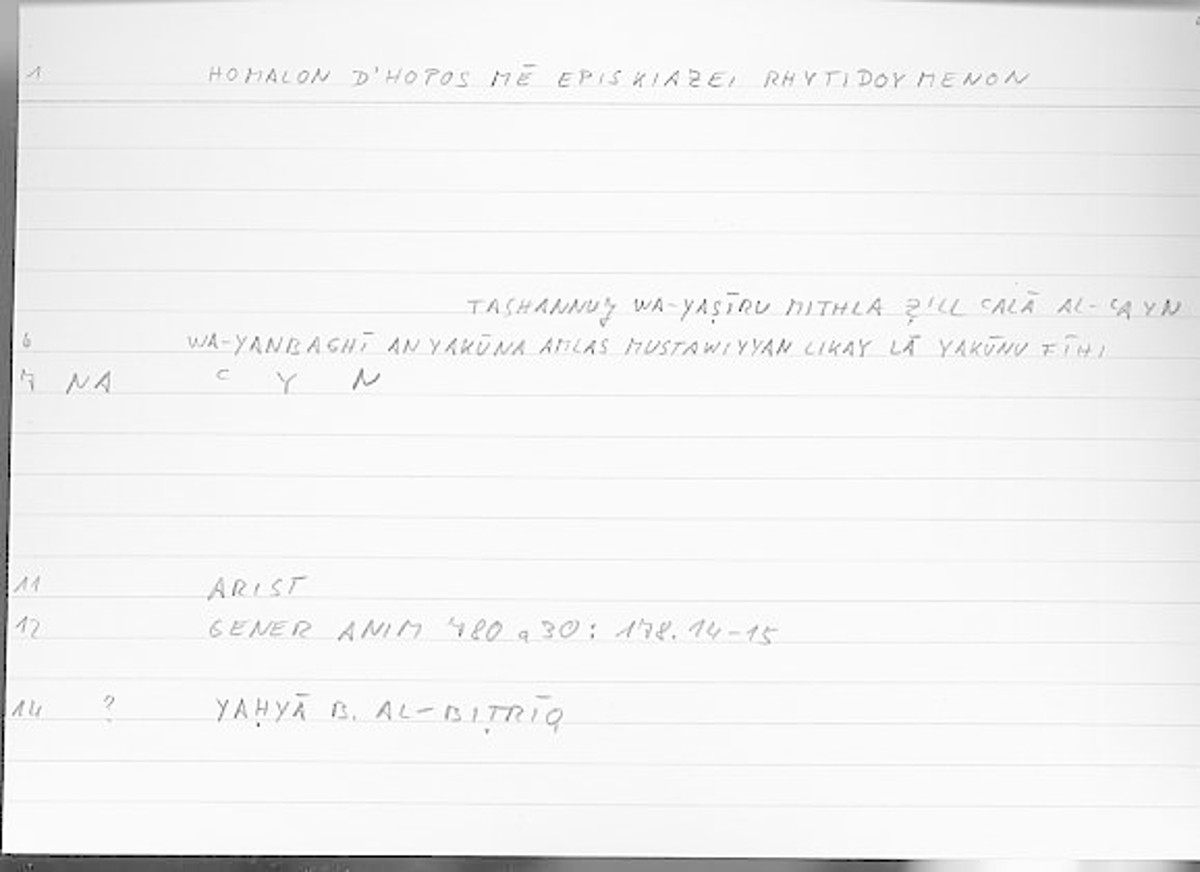 1 HOMALON D'HOPOS MĒ EPISKIAZEI RHYTIDOYMENON
TASHANNUJ WA-YAṢĪRU MITHLA Ẓ'LL ʿALĀ AL-ʿAYN
6 WA-YANBAGHĪ AN YAKŪNA AMLAS MUSTAWIYYAN LIKAY LĀ YAKŪNU FĪHI
7 NA ʿ Y N
11 ARIST
12 GENER ANIM 780 a 30: 178.14-15
14 ? YAḤYĀ B. AL-BIṬRĪQ